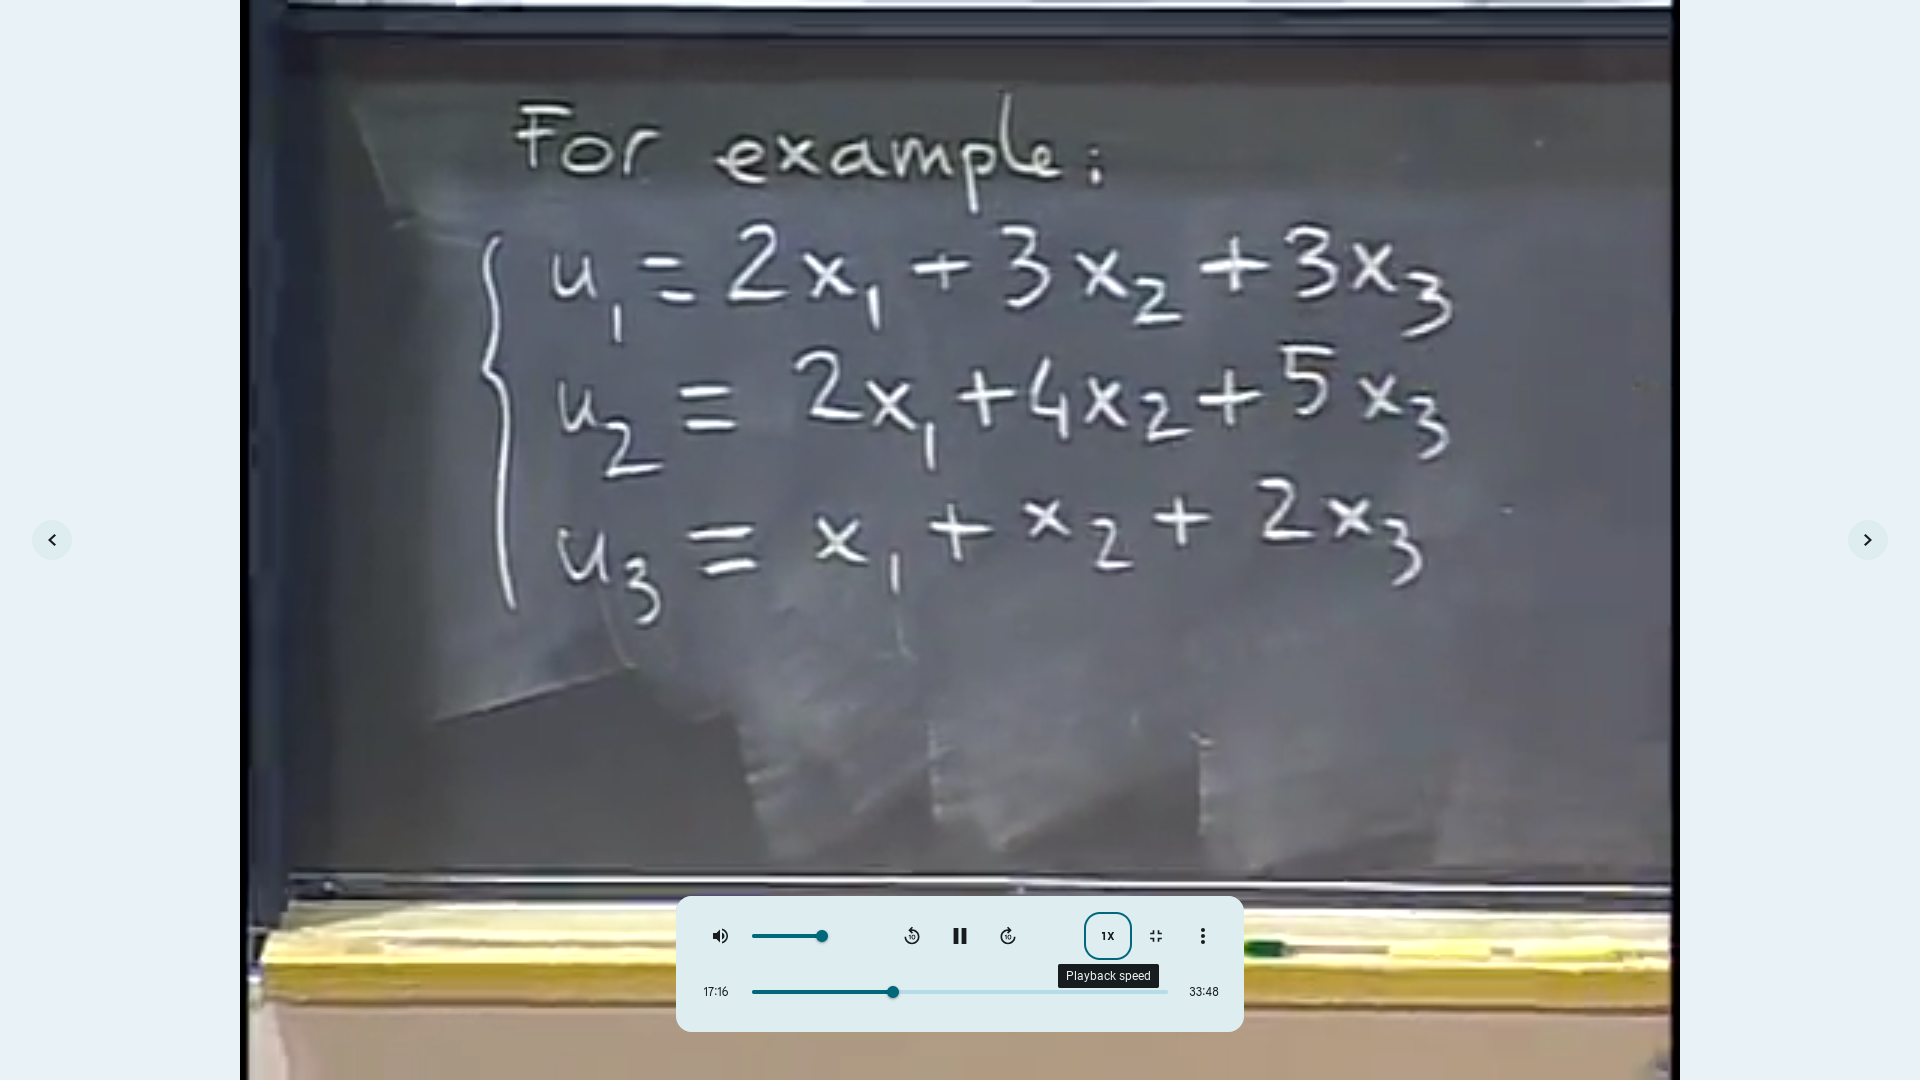 For example:
u₁ = 2x₁ + 3x₂ + 3x₃
u₂ = 2x₁ + 4x₂ + 5x₃
u₃ = x₁ + x₂ + 2x₃
10 10 1X
Playback speed
17:16 33:48